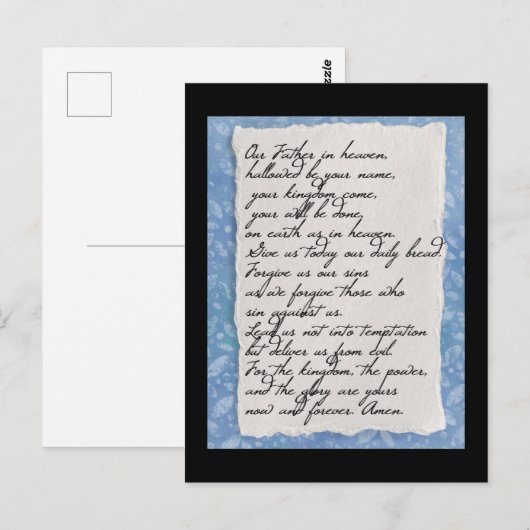 Our Father in heaven,
hallowed be your name,
your kingdom come,
your will be done,
on earth as in heaven.
Give us today our daily bread.
Forgive us our sins
as we forgive those who
sin against us.
Lead us not into temptation
but deliver us from evil.
For the kingdom, the power,
and the glory are yours
now and forever. Amen.